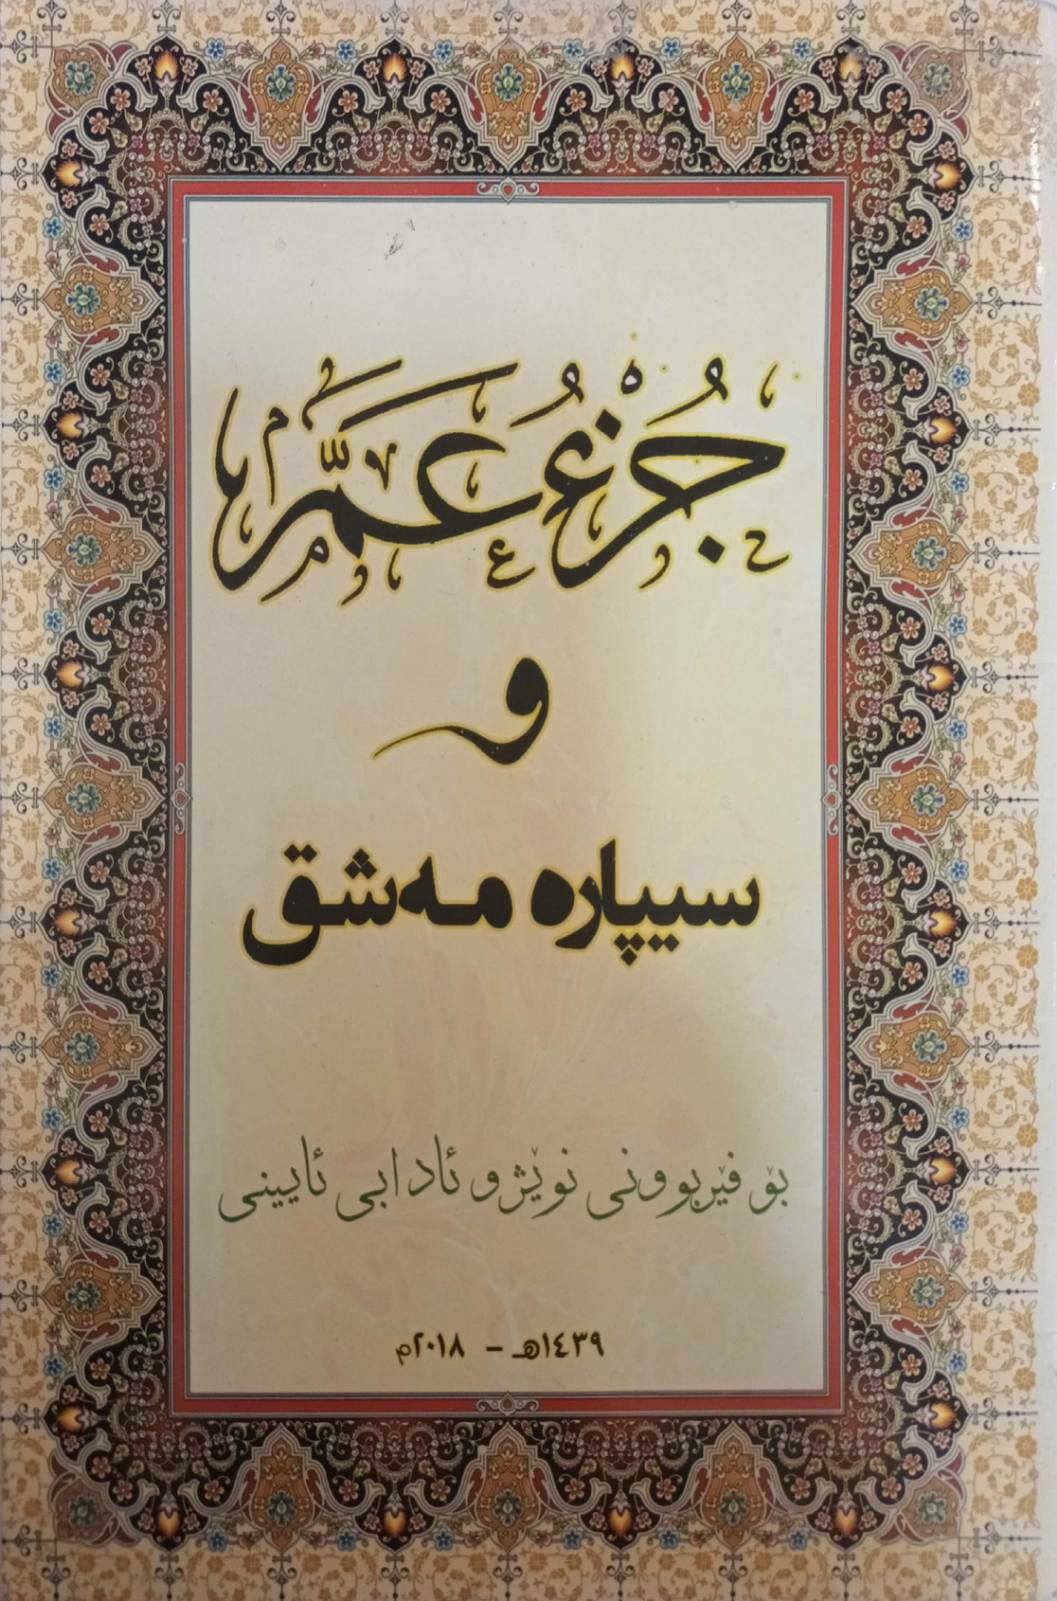 جُزْءُ عَمَّ
و
سیپاره مەشق
بۆ فێربوونی نوێژ و ئادابی ئایینی
١٤٣٩هـ - ٢٠١٨م